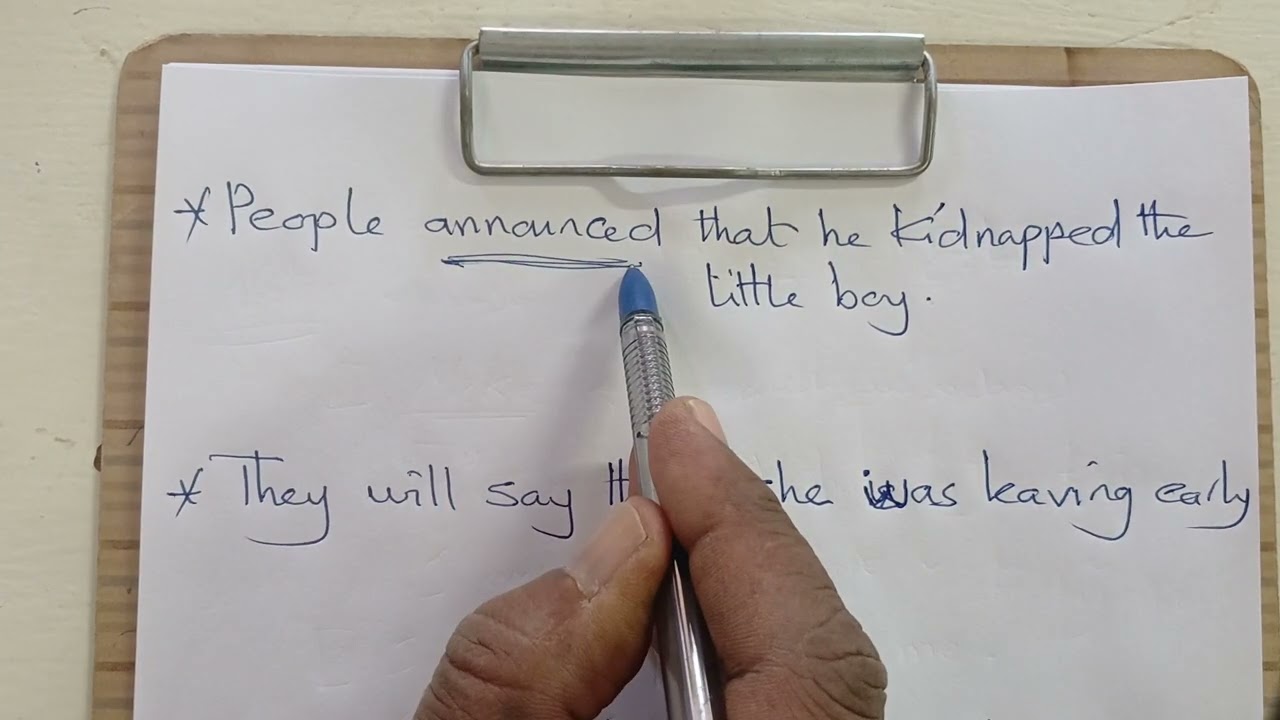 * People announced that he kidnapped the
little boy.
* They will say the was leaving early